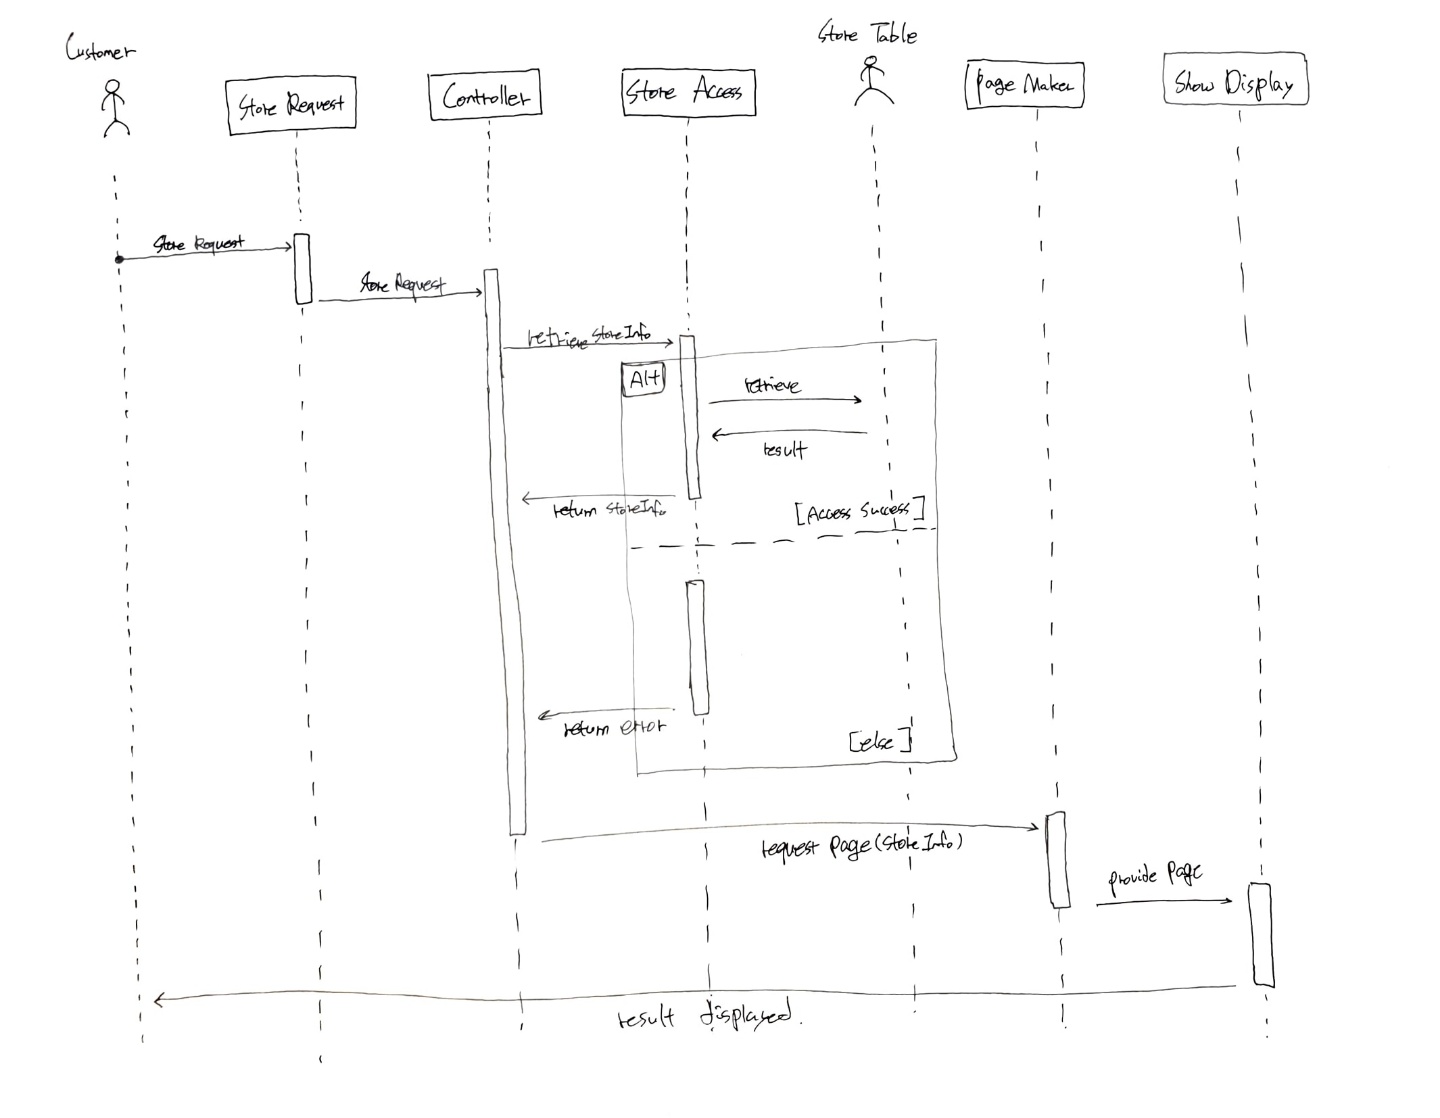 Customer
Store Request
Controller
Store Access
Store Table
Page Maker
Show Display
Store Request
Store Request
retrieve StoreInfo
Alt
retrieve
result
return storeInfo
[Access Success]
return error
[else]
request page(StoreInfo)
provide page
result displayed.